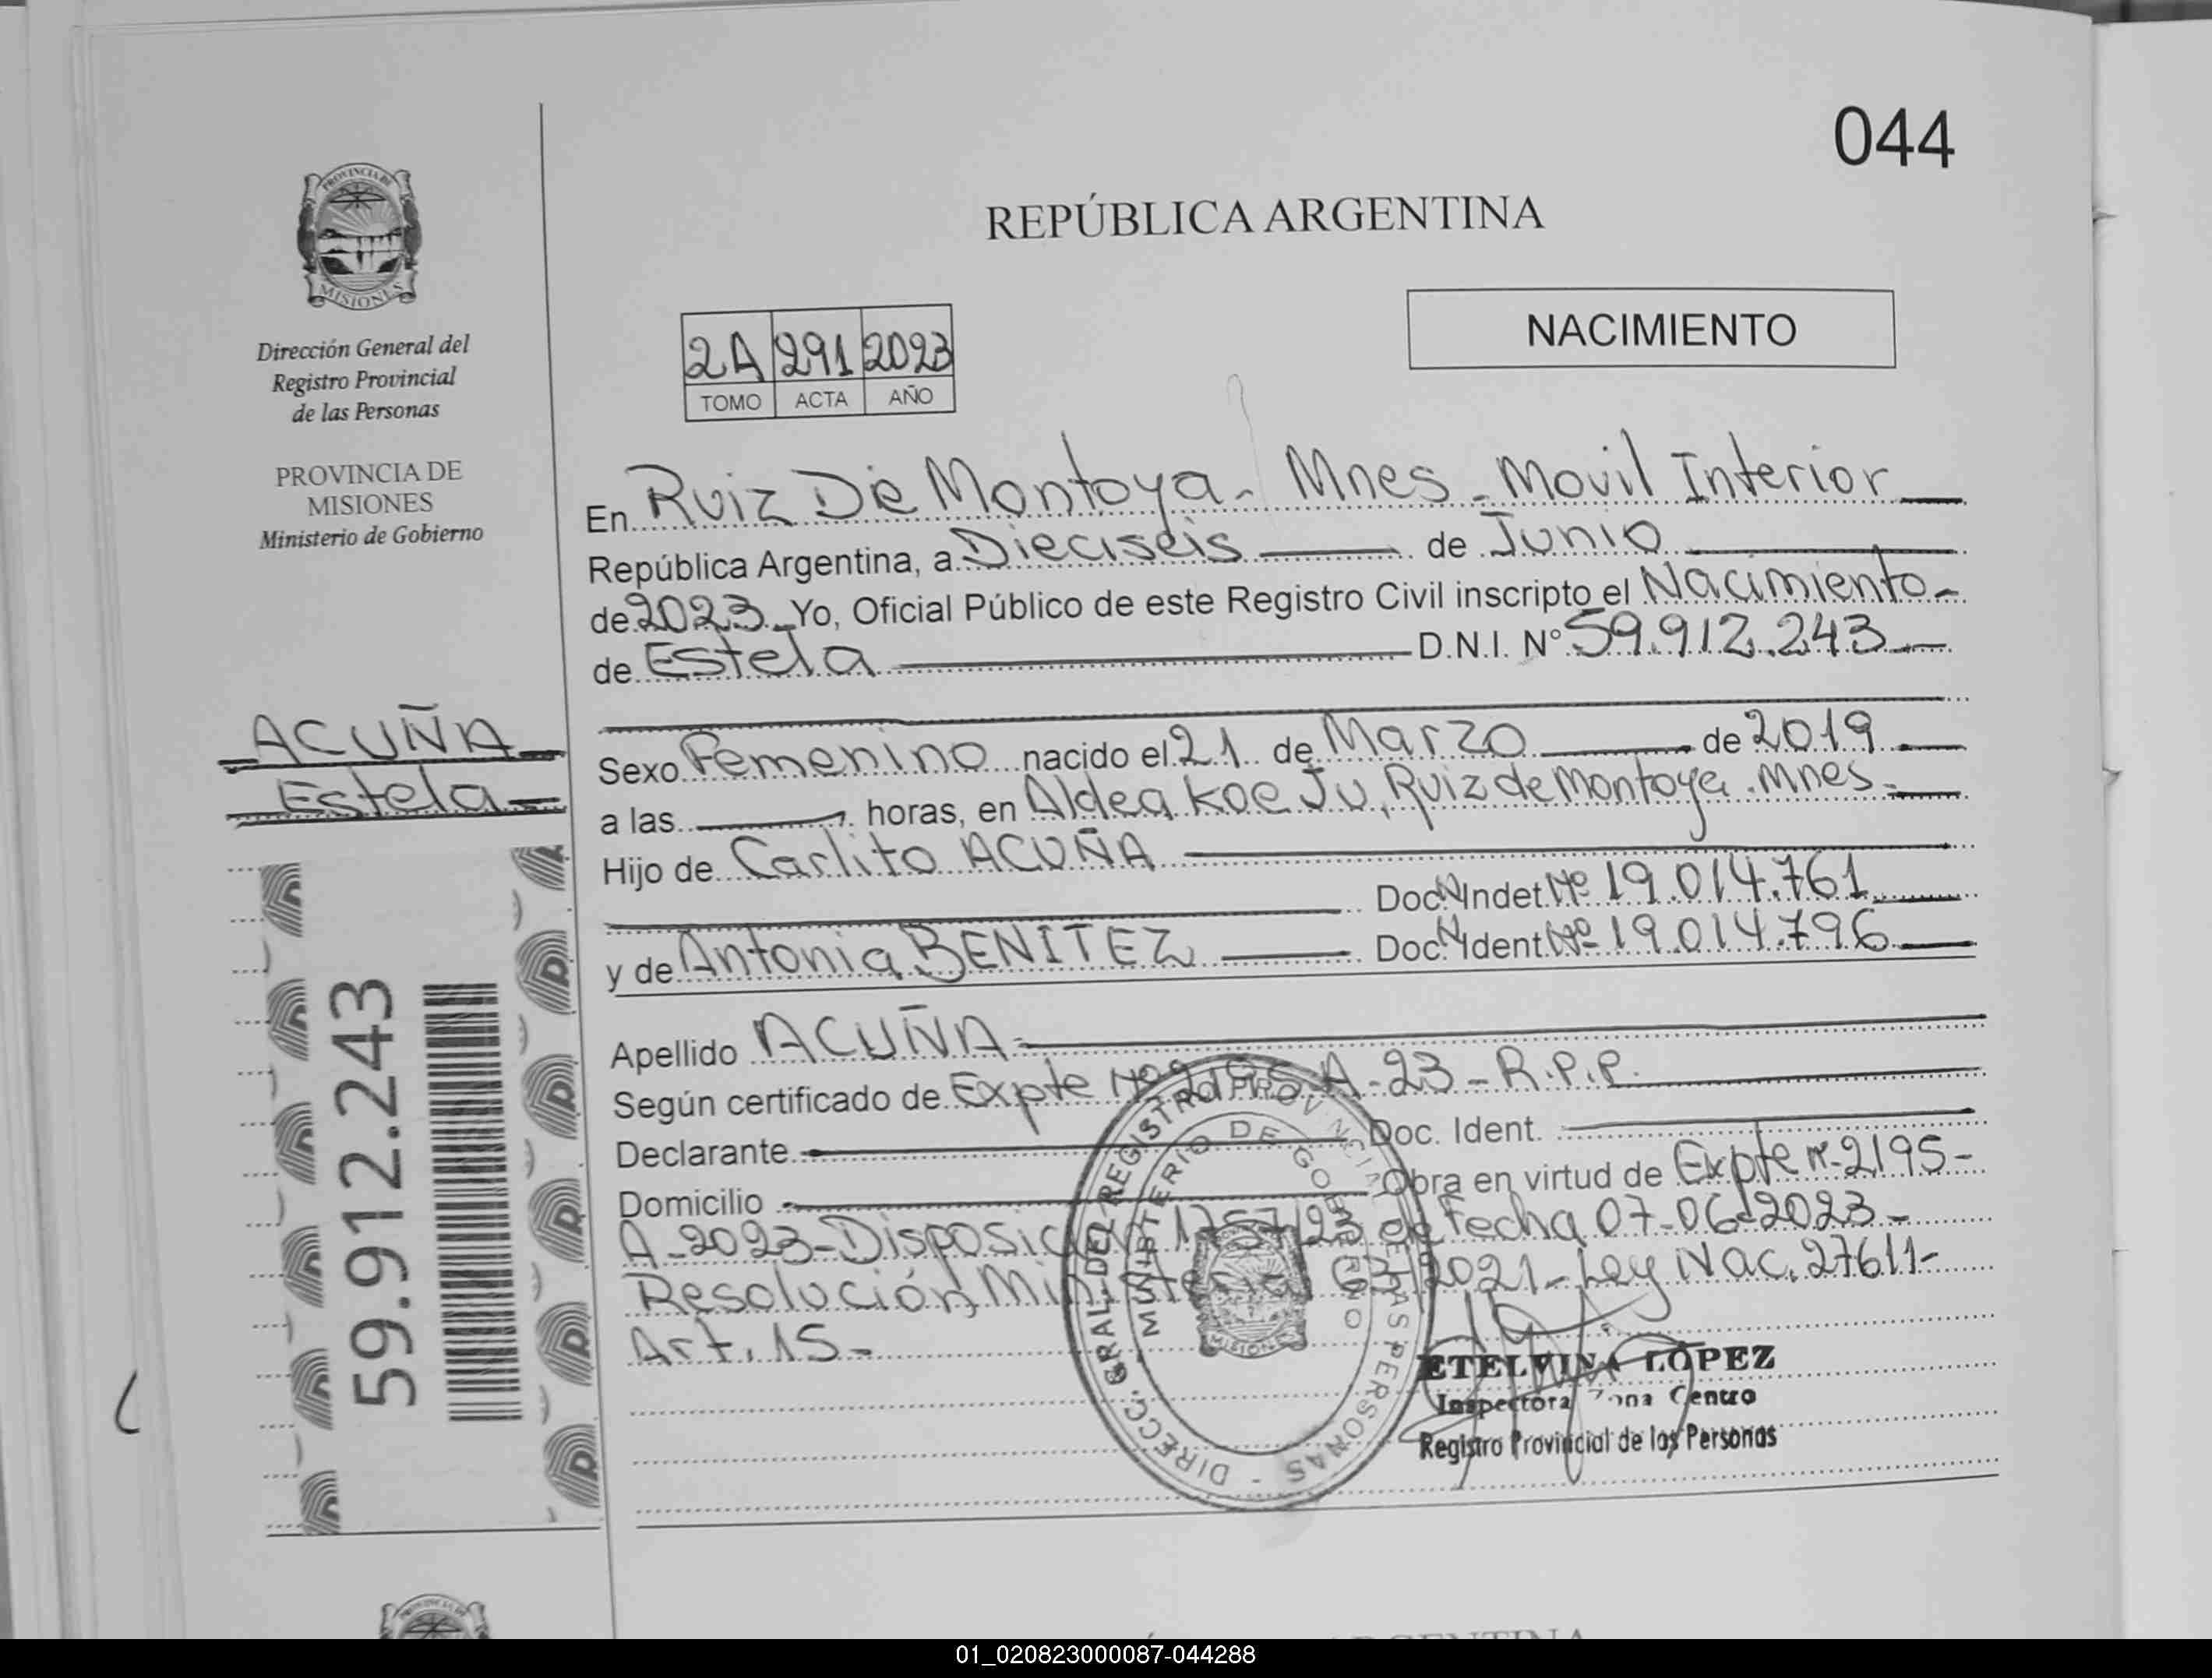 044
REPÚBLICA ARGENTINA
NACIMIENTO
PROVINCIA DE
MISIONES
Dirección General del
Registro Provincial
de las Personas
PROVINCIA DE
MISIONES
Ministerio de Gobierno
2A 291 2023
TOMO ACTA AÑO
En Ruiz De Montoya - Mnes - Movil Interior
República Argentina, a Dieciseis de Junio
de 2023 Yo, Oficial Público de este Registro Civil inscripto el Nacimiento
de Estela D.N.I. Nº 59.912.243
ACUÑA
Estela
Sexo Femenino nacido el 21 de Marzo de 2019
a las horas, en Aldea Koe Ju, Ruiz de Montoya. Mnes
Hijo de Carlito ACUÑA
Doc. N Indet. Nº 19.014.761
y de Antonia BENITEZ Doc. N Ident. Nº 19.014.796
Apellido ACUÑA
Según certificado de Expte Nº A-23-R.P.P.
Declarante Doc. Ident.
Domicilio Obra en virtud de Expte Nº 2195-
A-2023-Disposición 1757/23 de fecha 07-06-2023-
Resolución Ministerial 2021-Ley Nac. 27611-
Art. 15-
59.912.243
DIRECC. GRAL. DEL REGISTRO PROVINCIAL DE LAS PERSONAS
MINISTERIO DE GOBIERNO
MISIONES
ETELVINA LOPEZ
Inspectora Zona Centro
Registro Provincial de las Personas
01_020823000087-044288